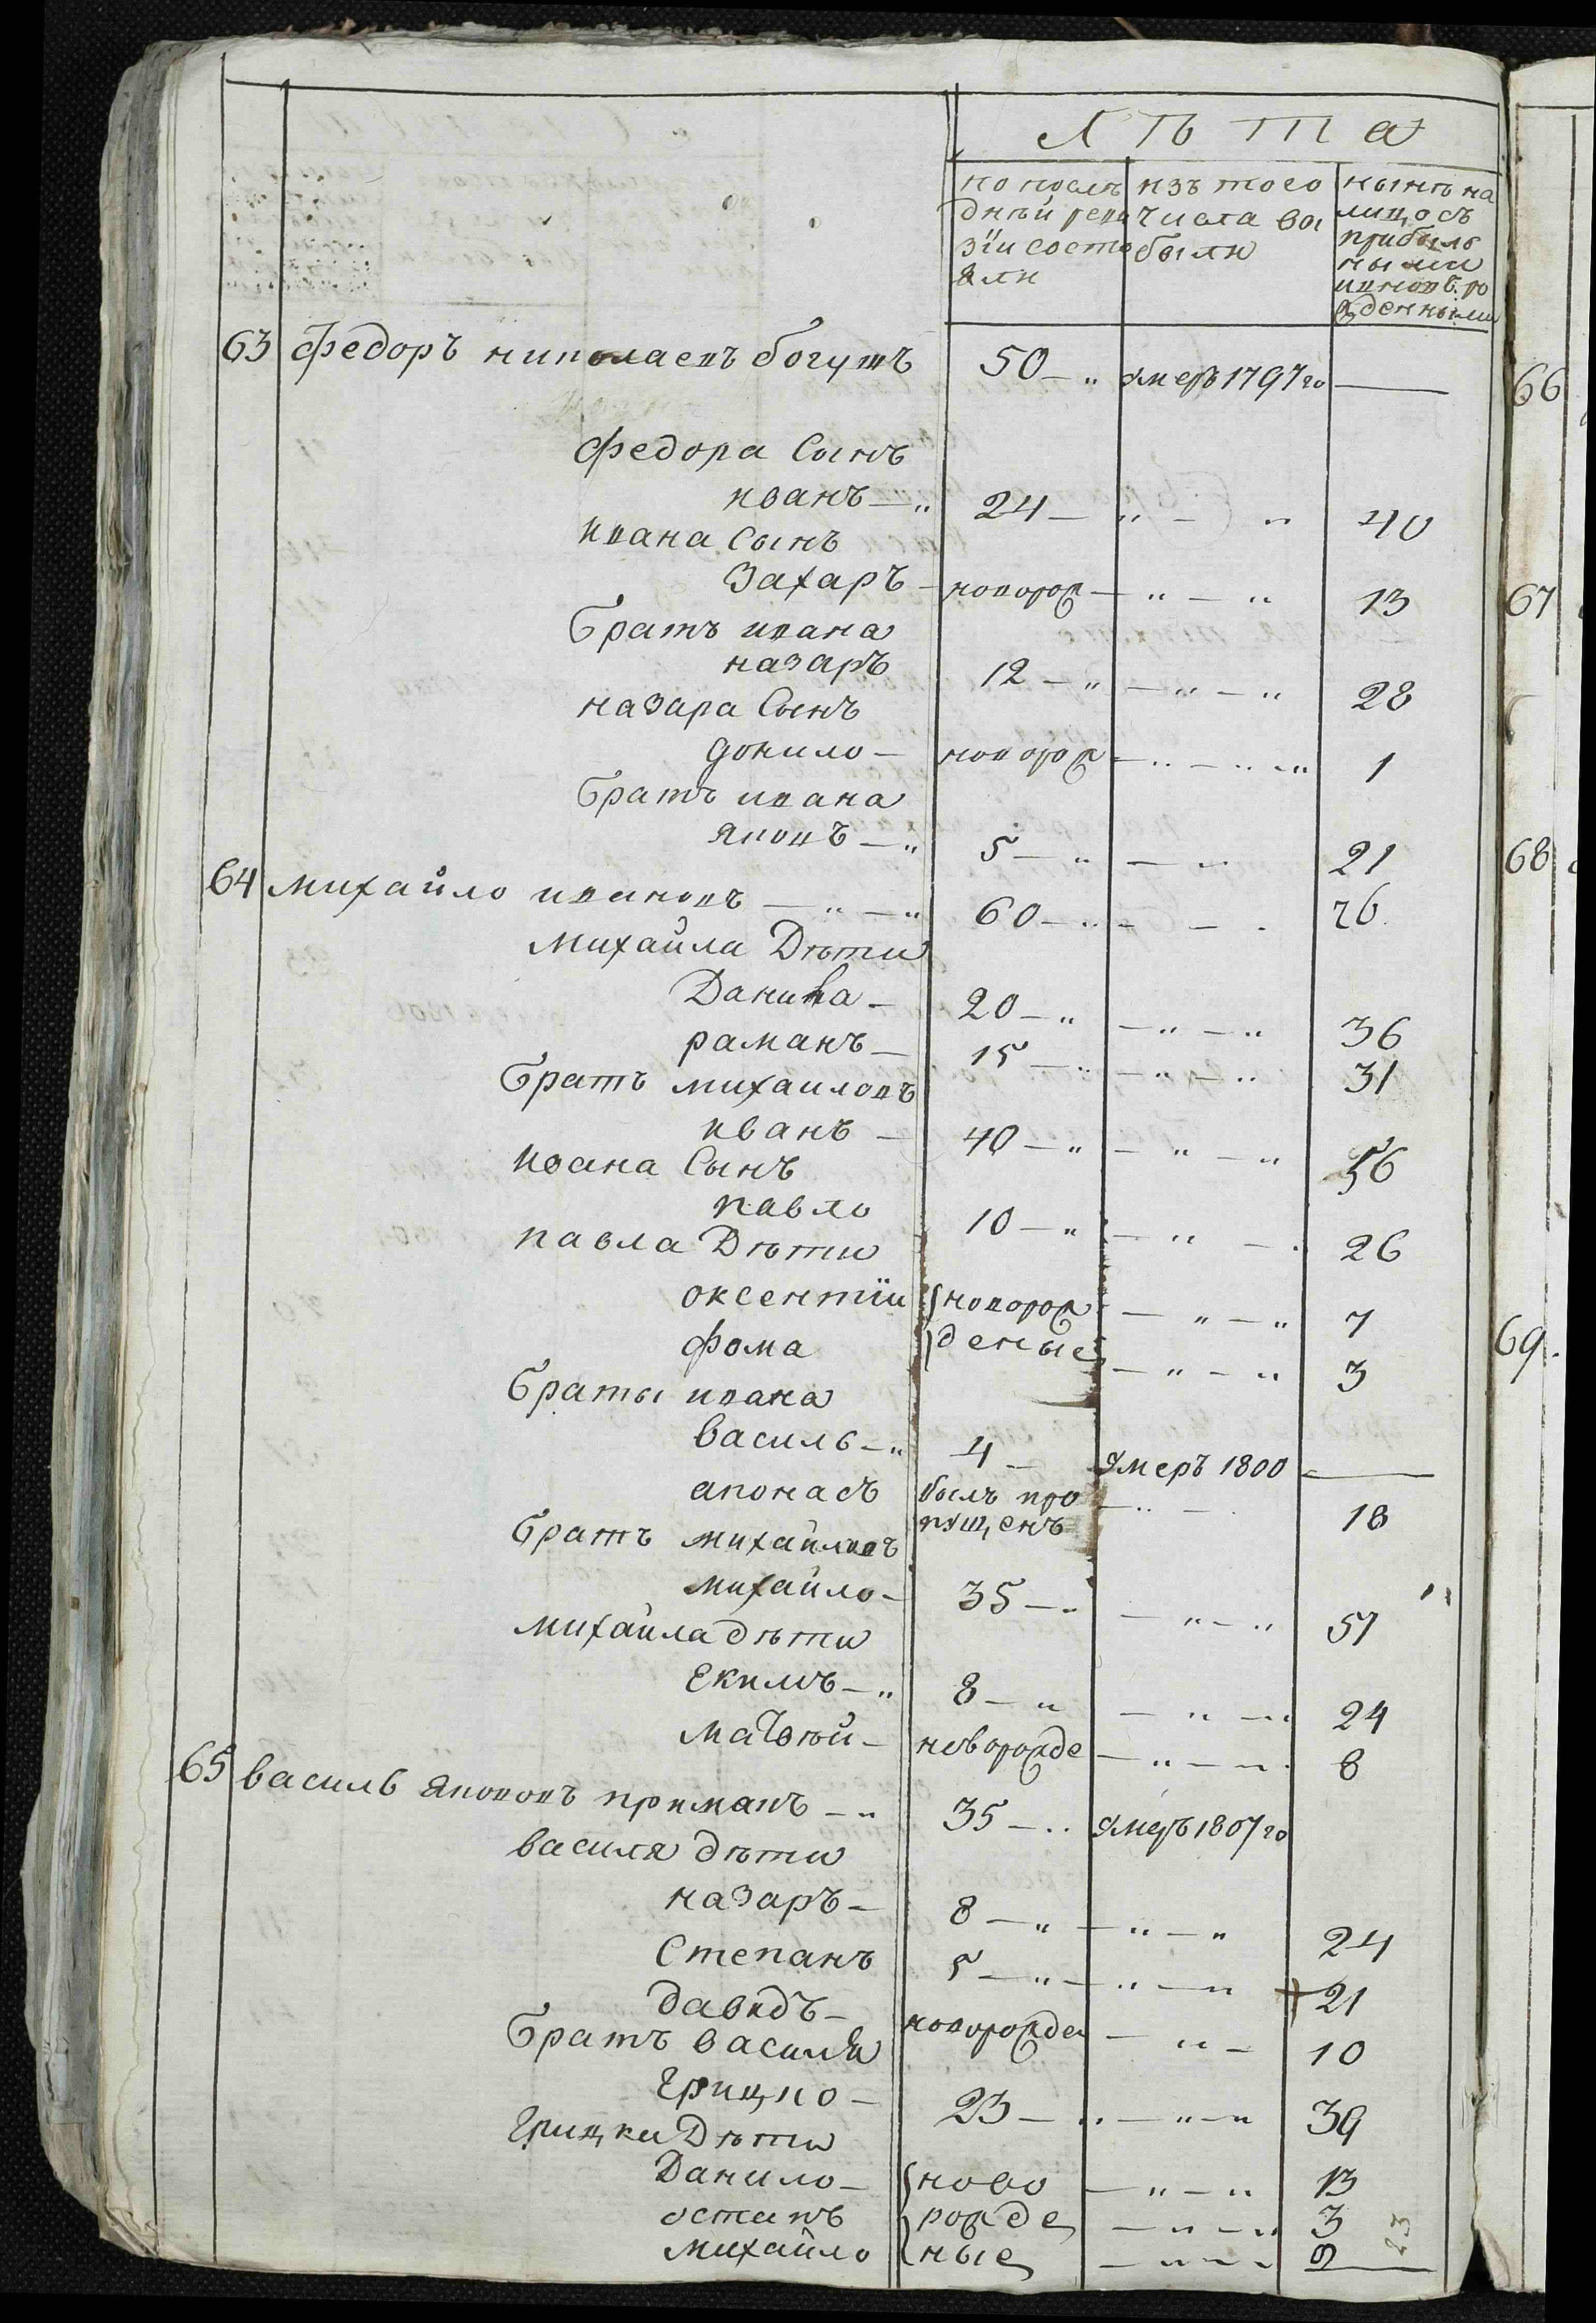 Лѣта
по послѣ
дней реви
зіи состо
яли
изъ того
числа вы
были
нынѣ на
лицо съ
прибыль
ными
и новоро
жденными
63 Федоръ николаевъ богушъ 50 умеръ 1797го
Федора Сынъ
иванъ 24 40
ивана Сынъ
Захаръ новорож 13
братъ ивана
назаръ 12 28
назара Сынъ
донило новорож 1
братъ ивана
яковъ 5 21
64 михайло ивановъ 60 76
михайла Дѣти
Данила 20 36
раманъ 15 31
братъ михаиловъ
иванъ 40 56
ивана Сынъ
павло 10 26
павла Дѣти
оксентіи новорож 7
фома деные 3
браты ивана
василь 4 умеръ 1800
апонасъ былъ про
пущенъ 18
братъ михайловъ
михайло 35 51
михайла дѣти
Екимъ 8 24
матвѣй новорожде 8
65 василь якововъ приманъ 35 умеръ 1807го
василя дѣти
назаръ 8 24
Степанъ 5 21
давидъ новорожден 10
братъ василя
грицко 23 39
грицка Дѣти
Данило ново 13
остапъ рожде 3
михайло ные 9
23
66
67
68
69.